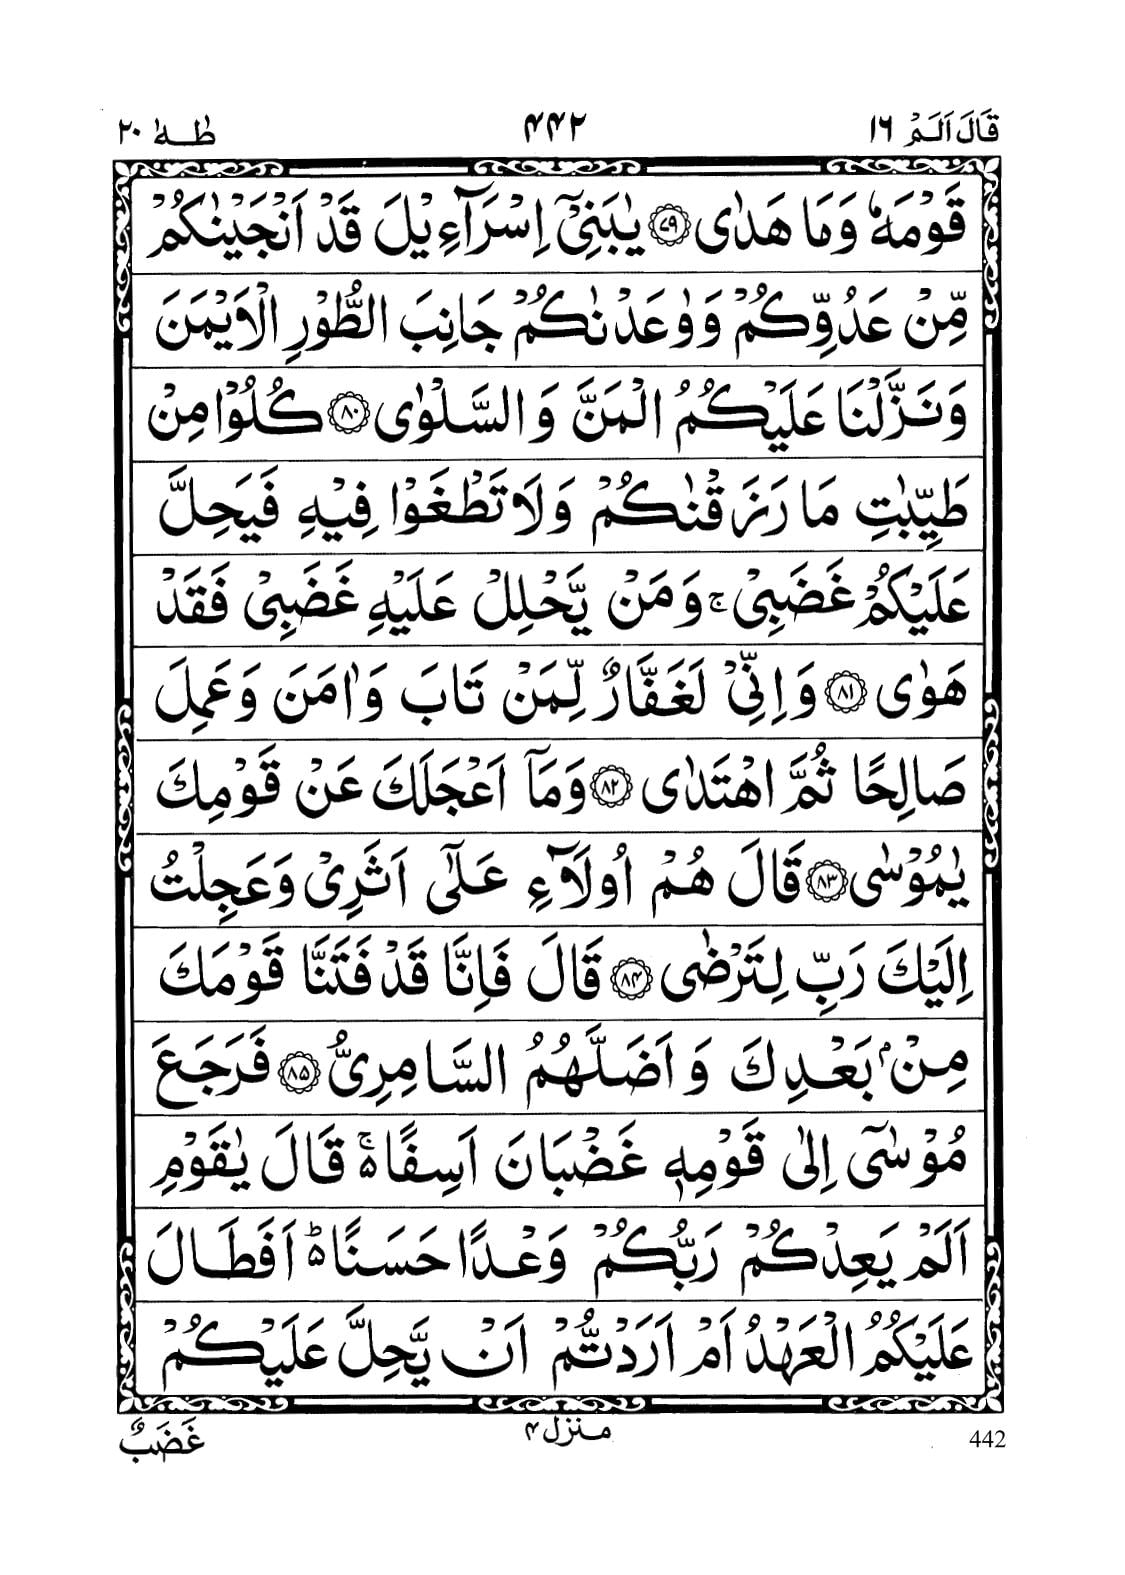 قَالَ اَلَمْ ١٦ ۴۴۲ طٰهٰ ٢٠
قَوْمَهٗ وَمَا هَدٰى ﴿۷۹﴾ يٰبَنِىْٓ اِسْرَآءِيْلَ قَدْ اَنْجَيْنٰكُمْ
مِّنْ عَدُوِّكُمْ وَوٰعَدْنٰكُمْ جَانِبَ الطُّوْرِ الْاَيْمَنَ
وَنَزَّلْنَا عَلَيْكُمُ الْمَنَّ وَالسَّلْوٰى ﴿۸۰﴾ كُلُوْا مِنْ
طَيِّبٰتِ مَا رَزَقْنٰكُمْ وَلَا تَطْغَوْا فِيْهِ فَيَحِلَّ
عَلَيْكُمْ غَضَبِىْ ۚ وَمَنْ يَّحْلِلْ عَلَيْهِ غَضَبِىْ فَقَدْ
هَوٰى ﴿۸۱﴾ وَاِنِّىْ لَغَفَّارٌ لِّمَنْ تَابَ وَاٰمَنَ وَعَمِلَ
صَالِحًا ثُمَّ اهْتَدٰى ﴿۸۲﴾ وَمَآ اَعْجَلَكَ عَنْ قَوْمِكَ
يٰمُوْسٰى ﴿۸۳﴾ قَالَ هُمْ اُولَآءِ عَلٰٓى اَثَرِىْ وَعَجِلْتُ
اِلَيْكَ رَبِّ لِتَرْضٰى ﴿۸۴﴾ قَالَ فَاِنَّا قَدْ فَتَنَّا قَوْمَكَ
مِنْۢ بَعْدِكَ وَاَضَلَّهُمُ السَّامِرِىُّ ﴿۸۵﴾ فَرَجَعَ
مُوْسٰٓى اِلٰى قَوْمِهٖ غَضْبَانَ اَسِفًا ۬ۚ قَالَ يٰقَوْمِ
اَلَمْ يَعِدْكُمْ رَبُّكُمْ وَعْدًا حَسَنًا ۬ؕ اَفَطَالَ
عَلَيْكُمُ الْعَهْدُ اَمْ اَرَدْتُّمْ اَنْ يَّحِلَّ عَلَيْكُمْ
442 منزل ۴ غَضَبٌ